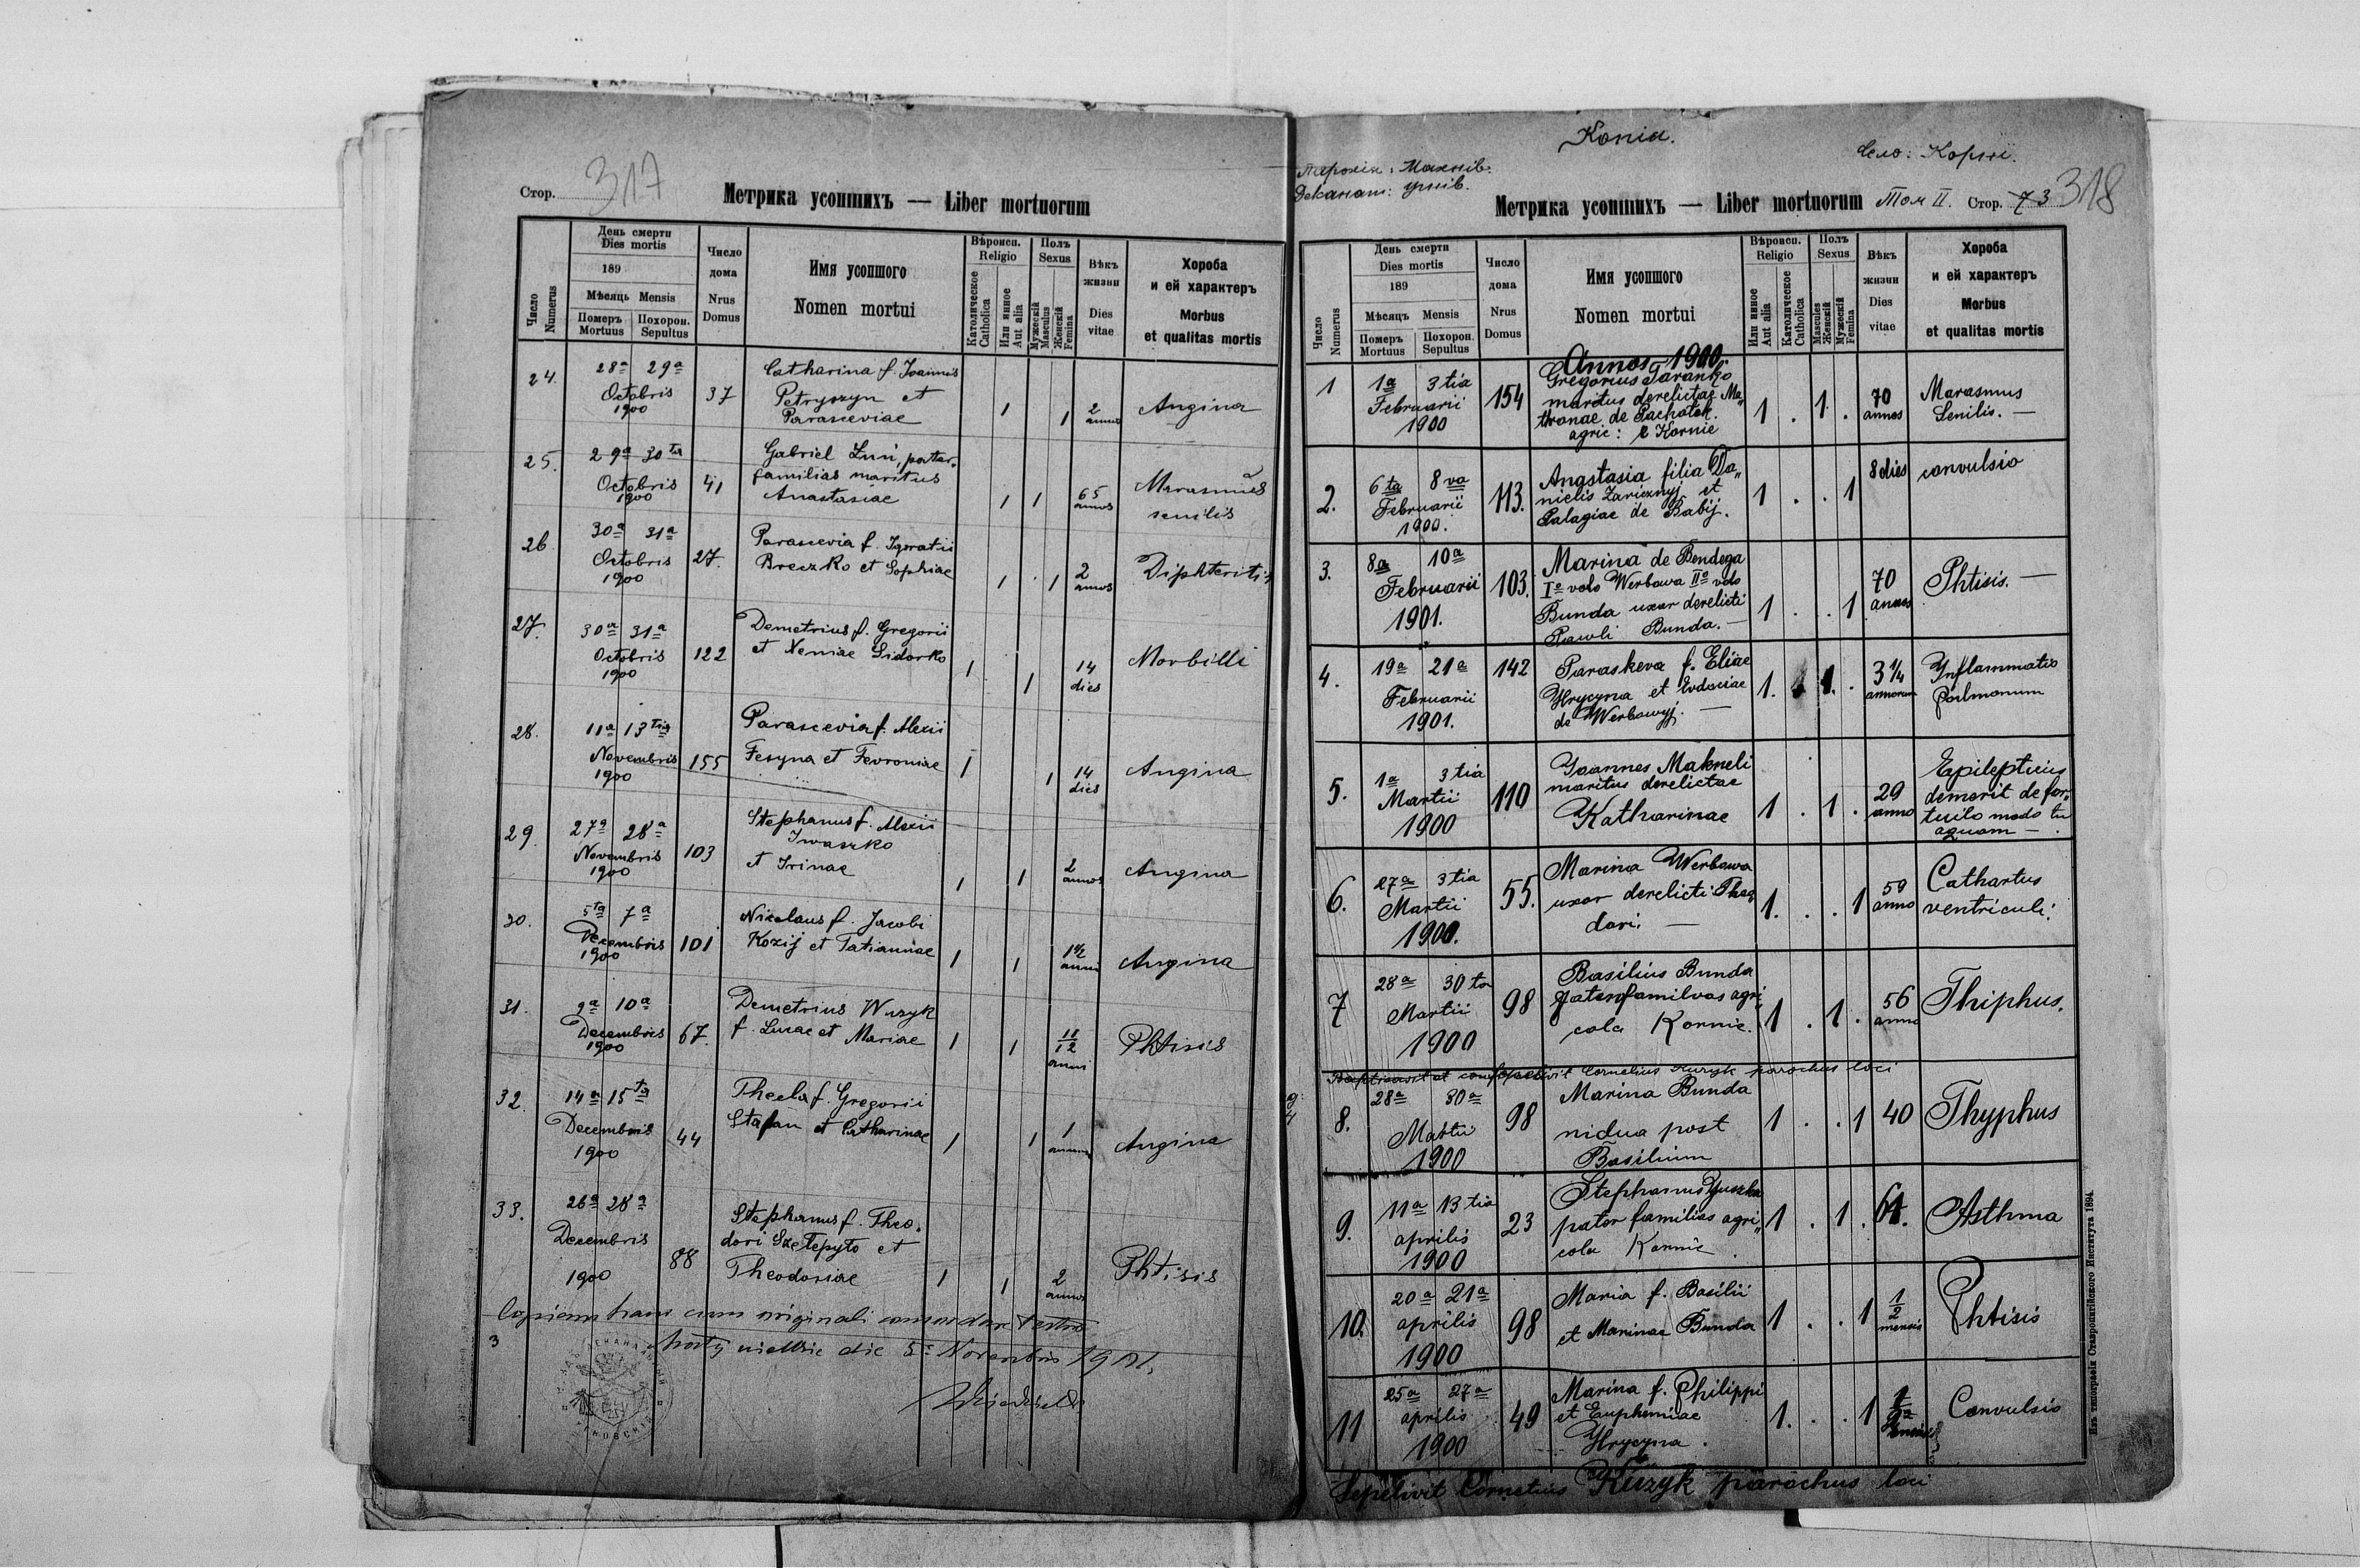 Стор. 317
Метрика усопшихъ — Liber mortuorum
Число
Numerus
День смерти
Dies mortis
189
Мѣсяць Mensis
Померъ
Mortuus
Похорон.
Sepultus
Число
дома
Nrus
Domus
Имя усопшого
Nomen mortui
Вѣроисп.
Religio
Католическое
Catholica
Или инное
Aut alia
Полъ
Sexus
Мужескій
Masculus
Женскій
Femina
Вѣкъ
жизни
Dies
vitae
Хороба
и ей характеръ
Morbus
et qualitas mortis
24. 28a 29a
Octobris
1900
37
Catharina f. Joannis
Petryszyn et
Parasceviae
1 1
2
annos
Angina
25. 29a 30ta
Octobris
1900
41
Gabriel Luni, pater.
familias maritus
Anastasiae
1 1
65
annos
Marasmus
senilis
26 30a 31a
Octobris
1900
27.
Parascevia f. Ignatii
Breczko et Sophiae
1 1
2
annos
Diphteritis
27. 30a 31a
Octobris
1900
122
Demetrius f. Gregorii
et Xeniae Sidorko
1 1
14
dies
Morbilli
28. 11a 13tia
Novembris
1900
155
Parascevia f. Alexii
Fesyna et Fevroniae
1 1
14
dies
Angina
29. 27a 28a
Novembris
1900
103
Stephanus f. Alexii
Iwaszko
et Irinae
1 1
2
annos
Angina
30. 5ta 7a
Decembris
1900
101
Nikolaus f. Jacobi
Kozij et Tatiannae
1 1
1 1/2
anni
Angina
31. 9a 10a
Decembris
1900
67.
Demetrius Wuzyk
f. Lucae et Mariae
1 1
11/12
anni
Phtisis
32. 14a 15ta
Decembris
1900
44
Thecla f. Gregorii
Stafan et Catharinae
1 1
1
annum
Angina
33. 26a 28a
Decembris
1900
88
Stephanus f. Theo.
dori Szełepyto et
Theodosiae
1 1
2
annos
Phtisis
Copiam hanc cum originali concordare testor
die 5. Novembris 1901.
Копія.
Село: Корні.
Парохія: Махнів.
Деканат: Угнів.
Метрика усопшихъ — Liber mortuorum Том II. Стор. 73 318
Число
Numerus
День смерти
Dies mortis
189
Мѣсяцъ Mensis
Померъ
Mortuus
Похорон.
Sepultus
Число
дома
Nrus
Domus
Имя усопшого
Nomen mortui
Вѣроисп.
Religio
Или инное
Aut alia
Католическое
Catholica
Полъ
Sexus
Masculus
Женскій
Мужескій
Femina
Вѣкъ
жизни
Dies
vitae
Хороба
и ей характеръ
Morbus
et qualitas mortis
Annos 1900.
1 1a 3tia
Februarii
1900
154
Gregorius Taranko
maritus derelictae Ma„
tronae de Pachotek.
agric: e Kornie
1 . 1 .
70
annos
Marasmus
Senilis. —
2. 6ta 8va
Februarii
1900.
113.
Anastasia filia Da„
nielis Zaricznyj et
Palagiae de Babij.
1 . . 1
8 dies
convulsio
3. 8a 10a
Februarii
1901.
103.
Marina de Bendega
Io voto Werbowa IIo voto
Bunda uxor derelicti
Pawli Bunda. —
1 . . 1
70
annos
Phtisis. —
4. 19a 21a
Februarii
1901.
142
Paraskeva f. Eliae
Hrycyna et Evdociae
de Werbowyj. —
1. 1. .
3 1/4
annorum
Inflammatio
pulmonum
5. 1a 3tia
Martii
1900
110
Joannes Makneli
maritus derelictae
Katharinae
1 . 1 .
29
anno
Epilepticus
demerit de for„
tuito modo in
aquam —.
6. 27a 3tia
Martii
1900.
55.
Marina Werbowa
uxor derelicti Theo„
dori. —
1. . . 1
59
anno
Cathartus
ventriculi.
7 28a 30ta
Martii
1900
98
Basilius Bunda
paterfamilias agri„
cola Kornie.
1 . 1 .
56
anno
Thiphus.
Baptisavit et confirmavit Cornelius Kuzyk parochus loci
8. 28a 30a
Martii
1900
98
Marina Bunda
vidua post
Basilium
1 . . 1
40
Thyphus
9. 11a 13tia
aprilis
1900
23
Stephanus Juszka
pater familias agri„
cola Kornie.
1 . 1 .
61.
Asthma
10. 20a 21a
aprilis
1900
98
Maria f. Basilii
et Marinae Bunda
1 . . 1
1/2
mensis
Phtisis
11 25a 27a
aprilis
1900
49
Marina f. Philippi
et Euphemiae
Hrycyna.
1. . . 1
Convulsio
Sepelivit Cornelius Kuzyk parochus loci
Изъ типографіи Ставропигійского Института 1894.